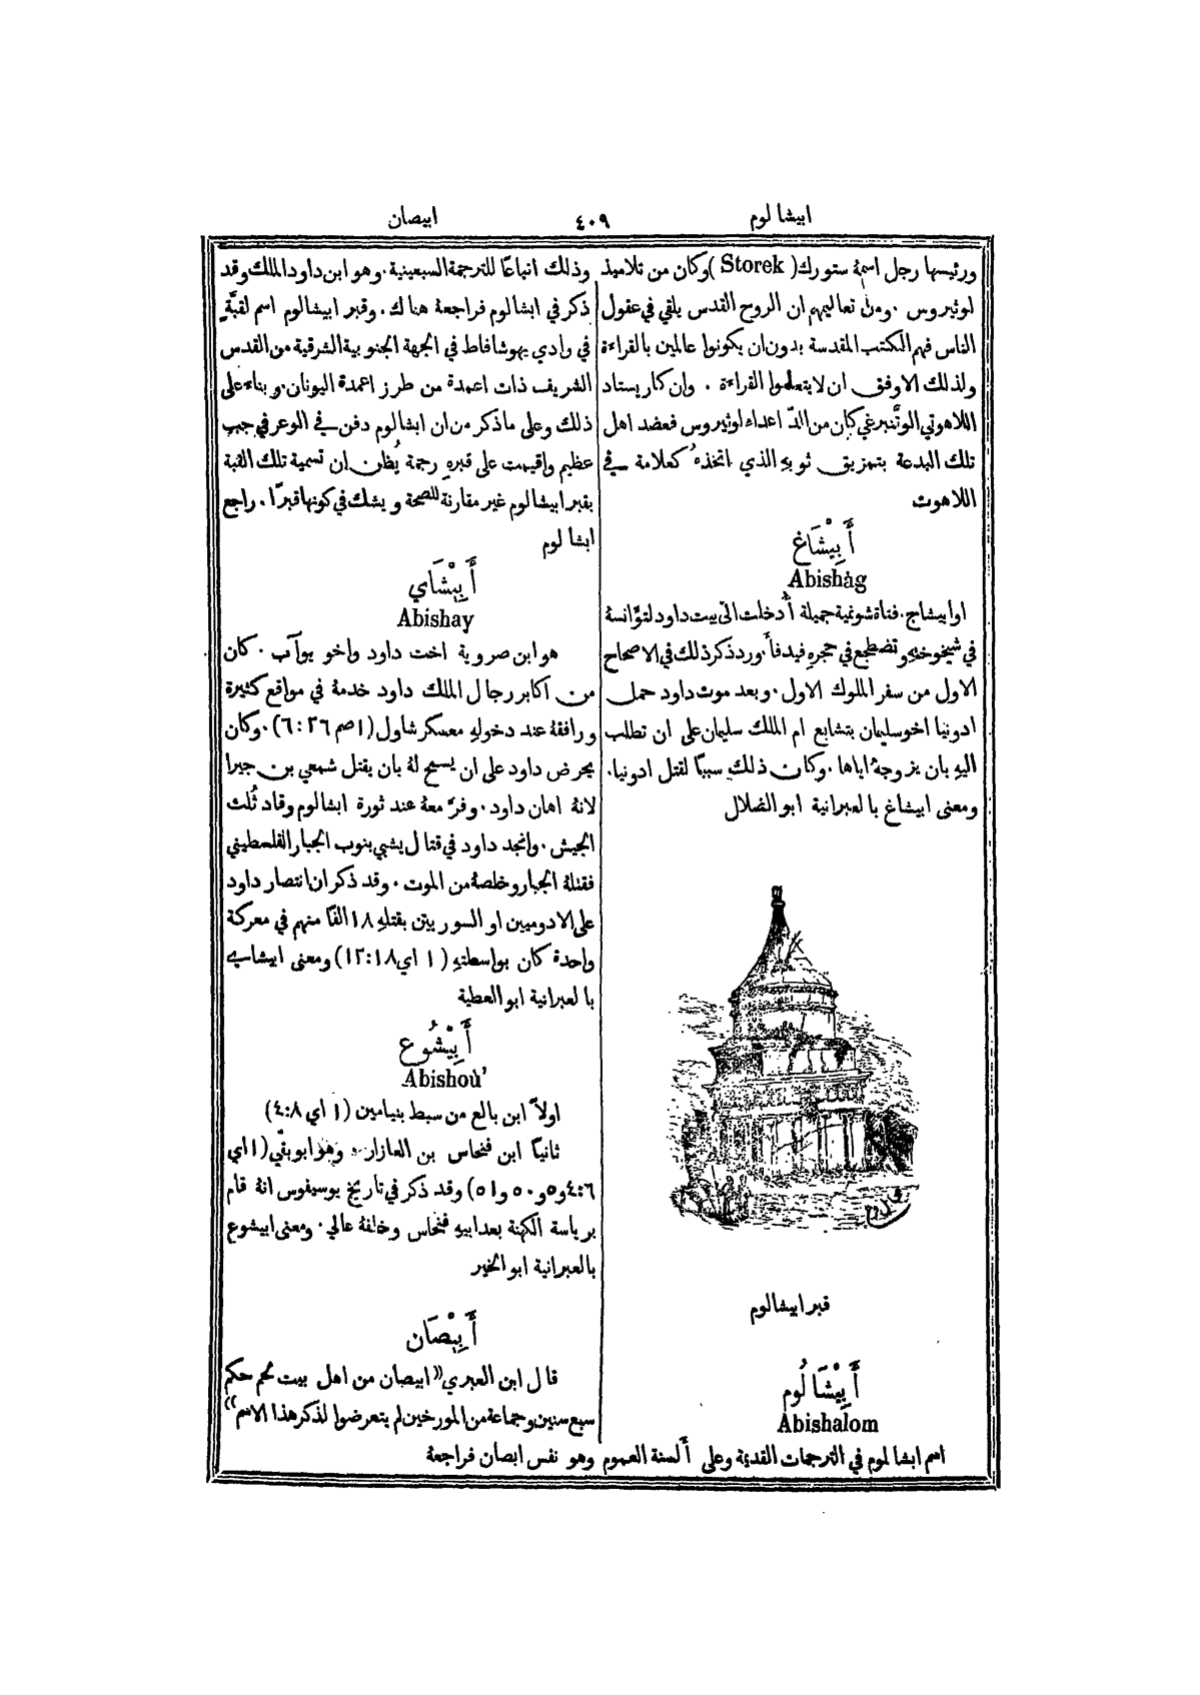 ابيشالوم ٤٠٩ ابيصان
ورئيسها رجل اسمهُ ستورك (Storek) وكان من تلاميذ
لوثيروس . ومن تعاليمهم ان الروح القدس يلقي في عقول
الناس فهم الكتب المقدسة بدون ان يكونوا عالمين بالقراءة
ولذلك الاوفق ان لا يتعلموا القراءة . وان كارلستاد
اللاهوتي الوتنبرغي كان من الدّ اعداء لوثيروس فعضد اهل
تلك البدعة بتمزيق ثوبهِ الذي اتخذهُ كعلامة في
اللاهوت
أَبِيْشَاغ
Abishag
او ابيشاج . فتاة شونمية جميلة أُدخلت الى بيت داود لتؤانسهُ
في شيخوختهِ وتضطجع في حجرهِ فيدفأ . ورد ذكر ذلك في الاصحاح
الاول من سفر الملوك الاول . وبعد موت داود حمل
ادونيا اخو سليمان بتشابع ام الملك سليمان على ان تطلب
اليهِ بان يزوجهُ اياها . وكان ذلك سببًا لقتل ادونيا .
ومعنى ابيشاغ بالعبرانية ابو الضلال
قبر ابيشالوم
أَبِيْشَالُوم
Abishalom
اسم ابشالوم في الترجمات القديمة وعلى ألسنة العموم
وذلك اتباعًا للترجمة السبعينية . وهو ابن داود الملك وقد
ذكر في ابشالوم فراجعهُ هناك . وقبر ابيشالوم اسم لقبَّةٍ
في وادي يهوشافاط في الجهة الجنوبية الشرقية من القدس
الشريف ذات اعمدة من طرز اعمدة اليونان . وبناءً على
ذلك وعلى ما ذكر من ان ابشالوم دفن في الوعر في جب
عظيم واقيمت على قبرهِ رجمة يُظن ان تسمية تلك القبة
بقبر ابيشالوم غير مقارنة للصحة ويشك في كونها قبرًا . راجع
ابشالوم
أَبِيْشَاي
Abishay
هو ابن صروية اخت داود واخو يوآب . كان
من اكابر رجال الملك داود خدمهُ في مواقع كثيرة
ورافقهُ عند دخولهِ معسكر شاول (١صم ٢٦:٦) . وكان
يحرض داود على ان يسمح لهُ بان يقتل شمعي بن جيرا
لانهُ اهان داود . وفرَّ معهُ عند ثورة ابشالوم وقاد ثُلث
الجيش . وانجد داود في قتال يشبي بنوب الجبار الفلسطيني
فقتلهُ الجبار وخلصهُ من الموت . وقد ذكر ان انتصار داود
على الادوميين او السوريين بقتلهِ ١٨ الفًا منهم في معركة
واحدة كان بواسطتهِ (١ اي ١٨:١٢) ومعنى ابيشاي
بالعبرانية ابو العطية
أَبِيْشُوع
Abishou'
اولاً ابن بالع من سبط بنيامين (١ اي ٨:٤)
ثانيًا ابن فنحاس بن العازار وهو ابو بقّي (١ اي
٦:٤ و٥ و٥٠ و٥١) وقد ذكر في تاريخ يوسيفوس انهُ قام
برياسة الكهنة بعد ابيهِ فنحاس وخلفهُ عالي . ومعنى ابيشوع
بالعبرانية ابو الخير
أَبِيْصَان
قال ابن العبري «ابيصان من اهل بيت لحم حكم
سبع سنين وجماعة من المورخين لم يتعرضوا لذكر هذا الاسم»
وهو نفس ابصان فراجعهُ